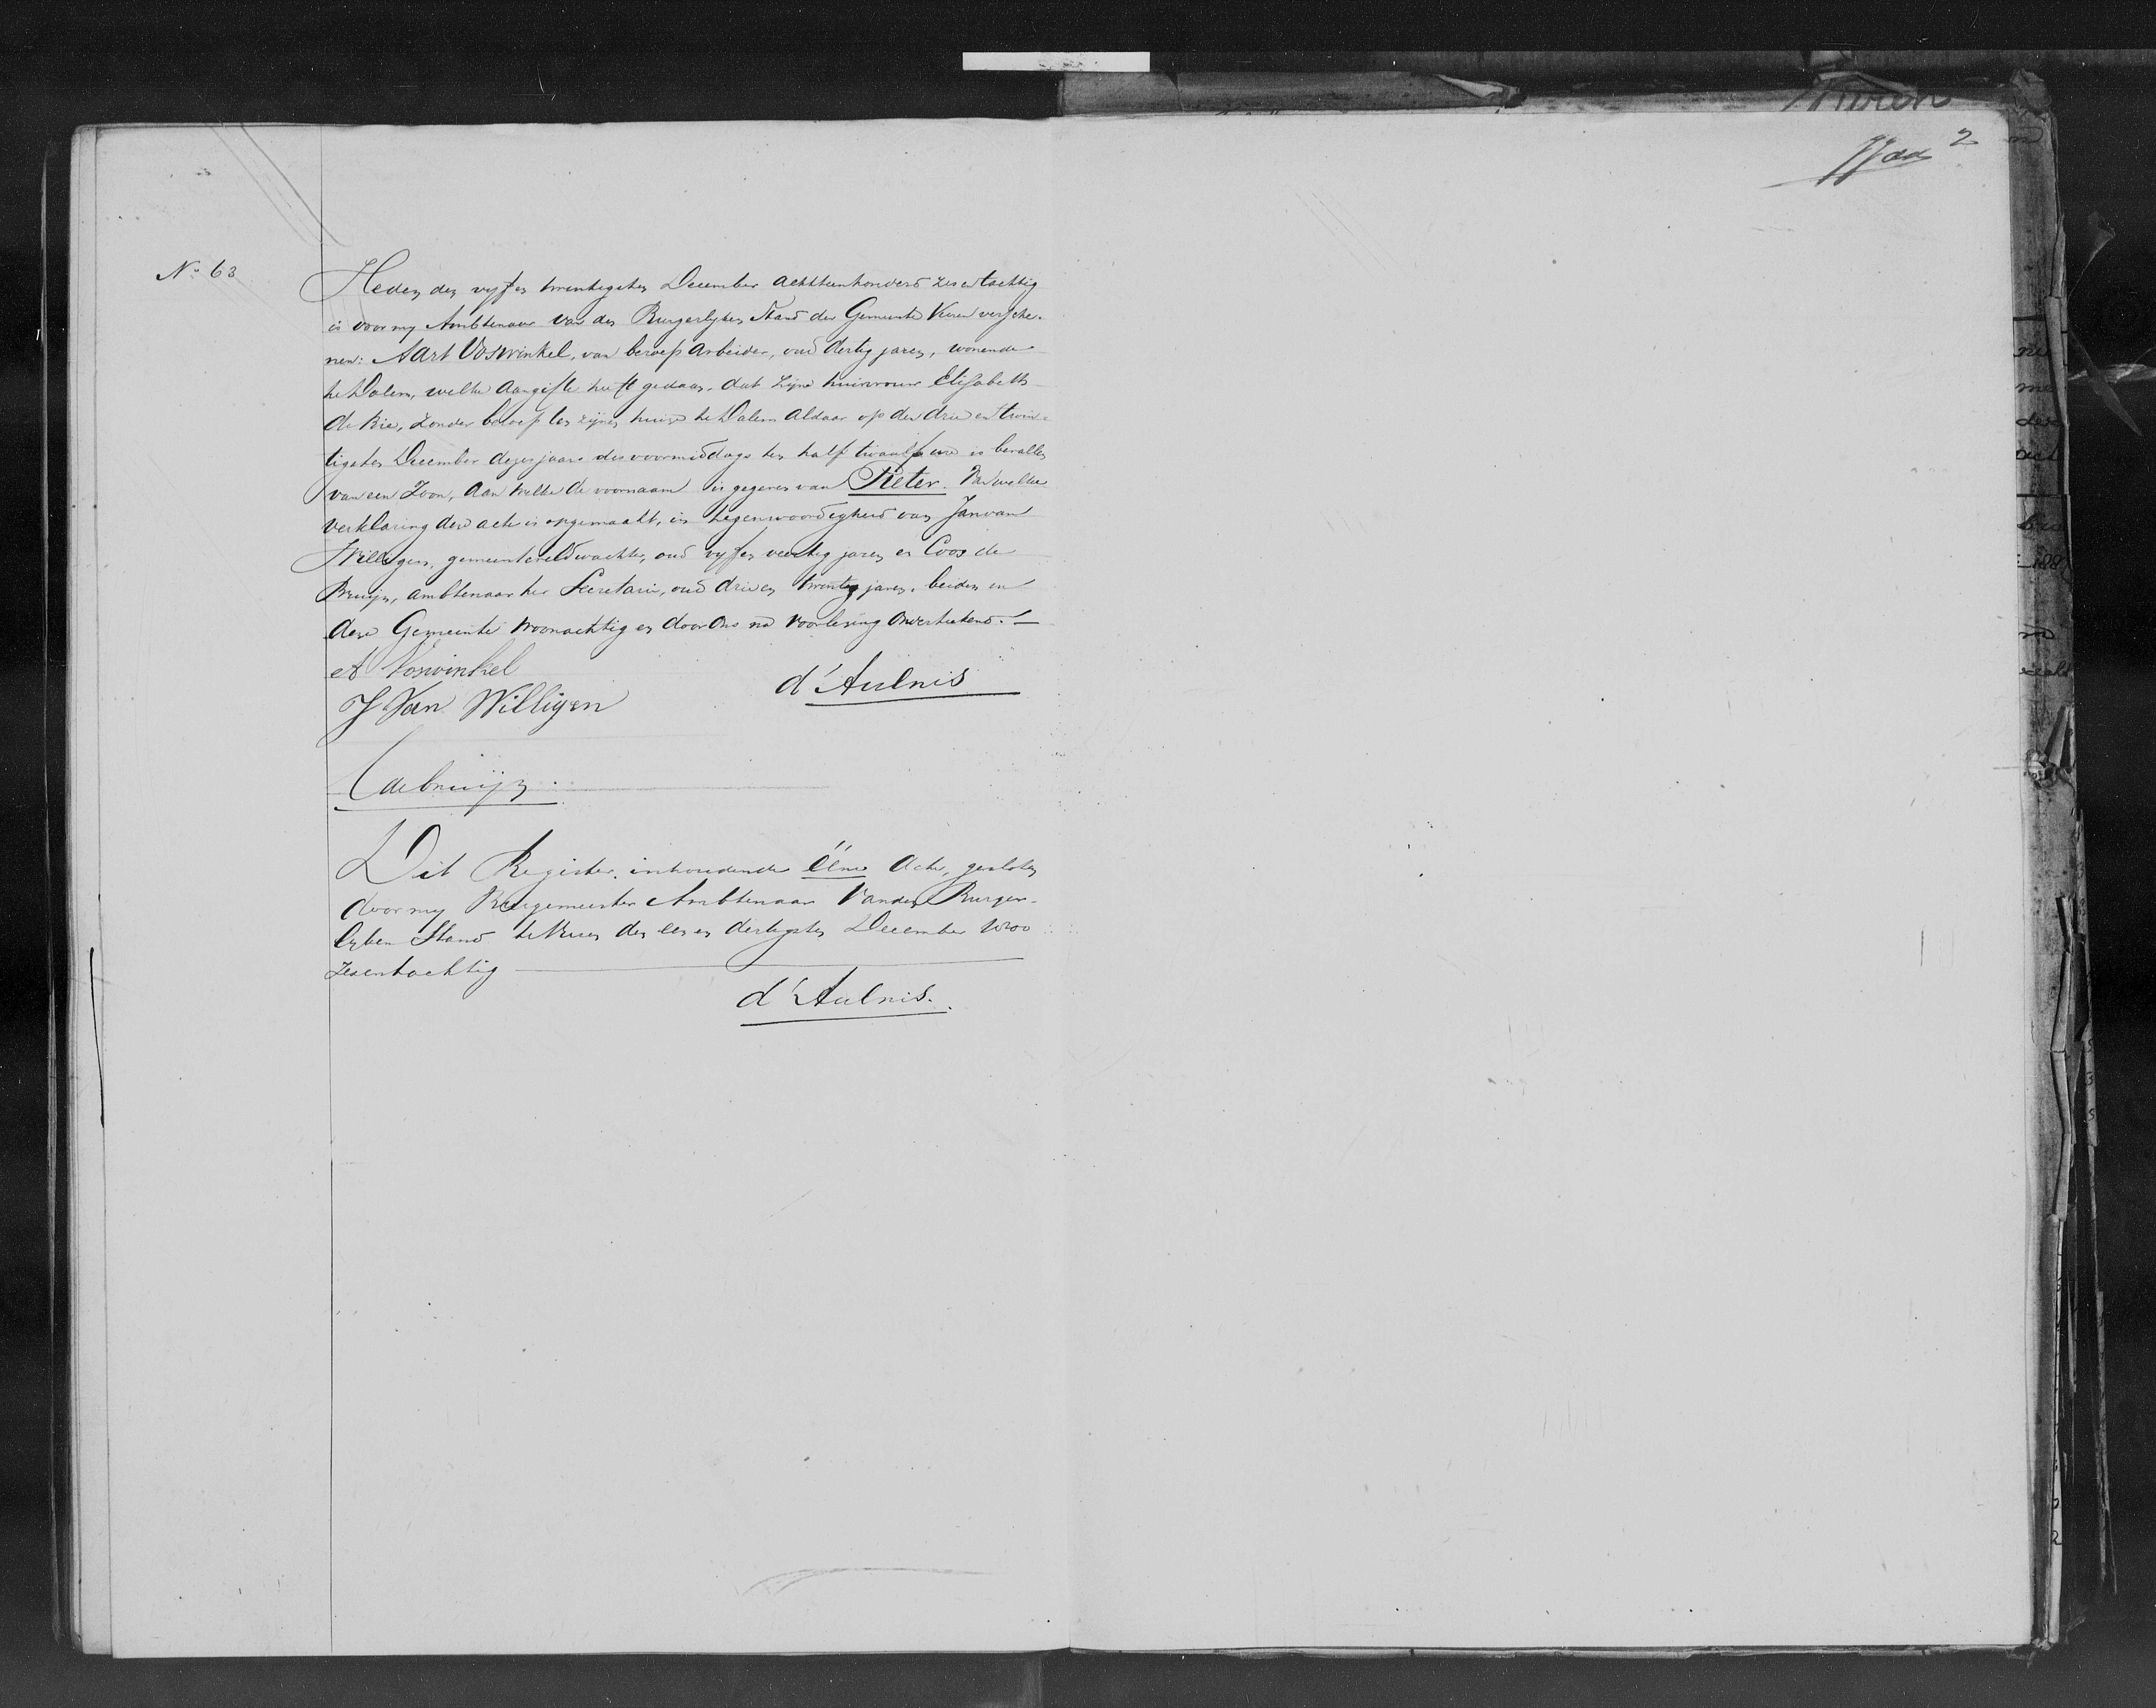 2
No 63
Heden den vyf en twintigsten December achttienhonderd zes en tachtig
is voor my Ambtenaar van den Burgerlyken Stand der Gemeente Vuren versche-
nen: Aart Voswinkel, van beroep Arbeider, oud dertig jaren, wonende
te Dalem, welke aangifte heeft gedaan, dat zijne huisvrouw Elisabeth
de Bie, zonder beroep ten zijnen huize te Dalem aldaar op den drie en twin-
tigsten December dezes jaars des voormiddags ten half twaalf ure is bevallen
van een Zoon, aan welke de voornaam is gegeven van Pieter. Van welke
verklaring deze acte is opgemaakt, in tegenwoordigheid van Jan van
Willigen, gemeenteveldwachter, oud vyf en veertig jaren en Coos de
Bruijn, ambtenaar ter Secretarie, oud drie en twintig jaren, beiden in
deze Gemeente woonachtig en door ons na voorlezing onderteekend. -
A Voswinkel
d'Aulnis
J Van Willigen
C de bruijn
Dit Register, inhoudende ééne Acte, gesloten
door my Burgemeester Ambtenaar van den Burger-
lyken Stand te Vuren den een en dertigsten December 1800
zesentachtig
d'Aulnis.